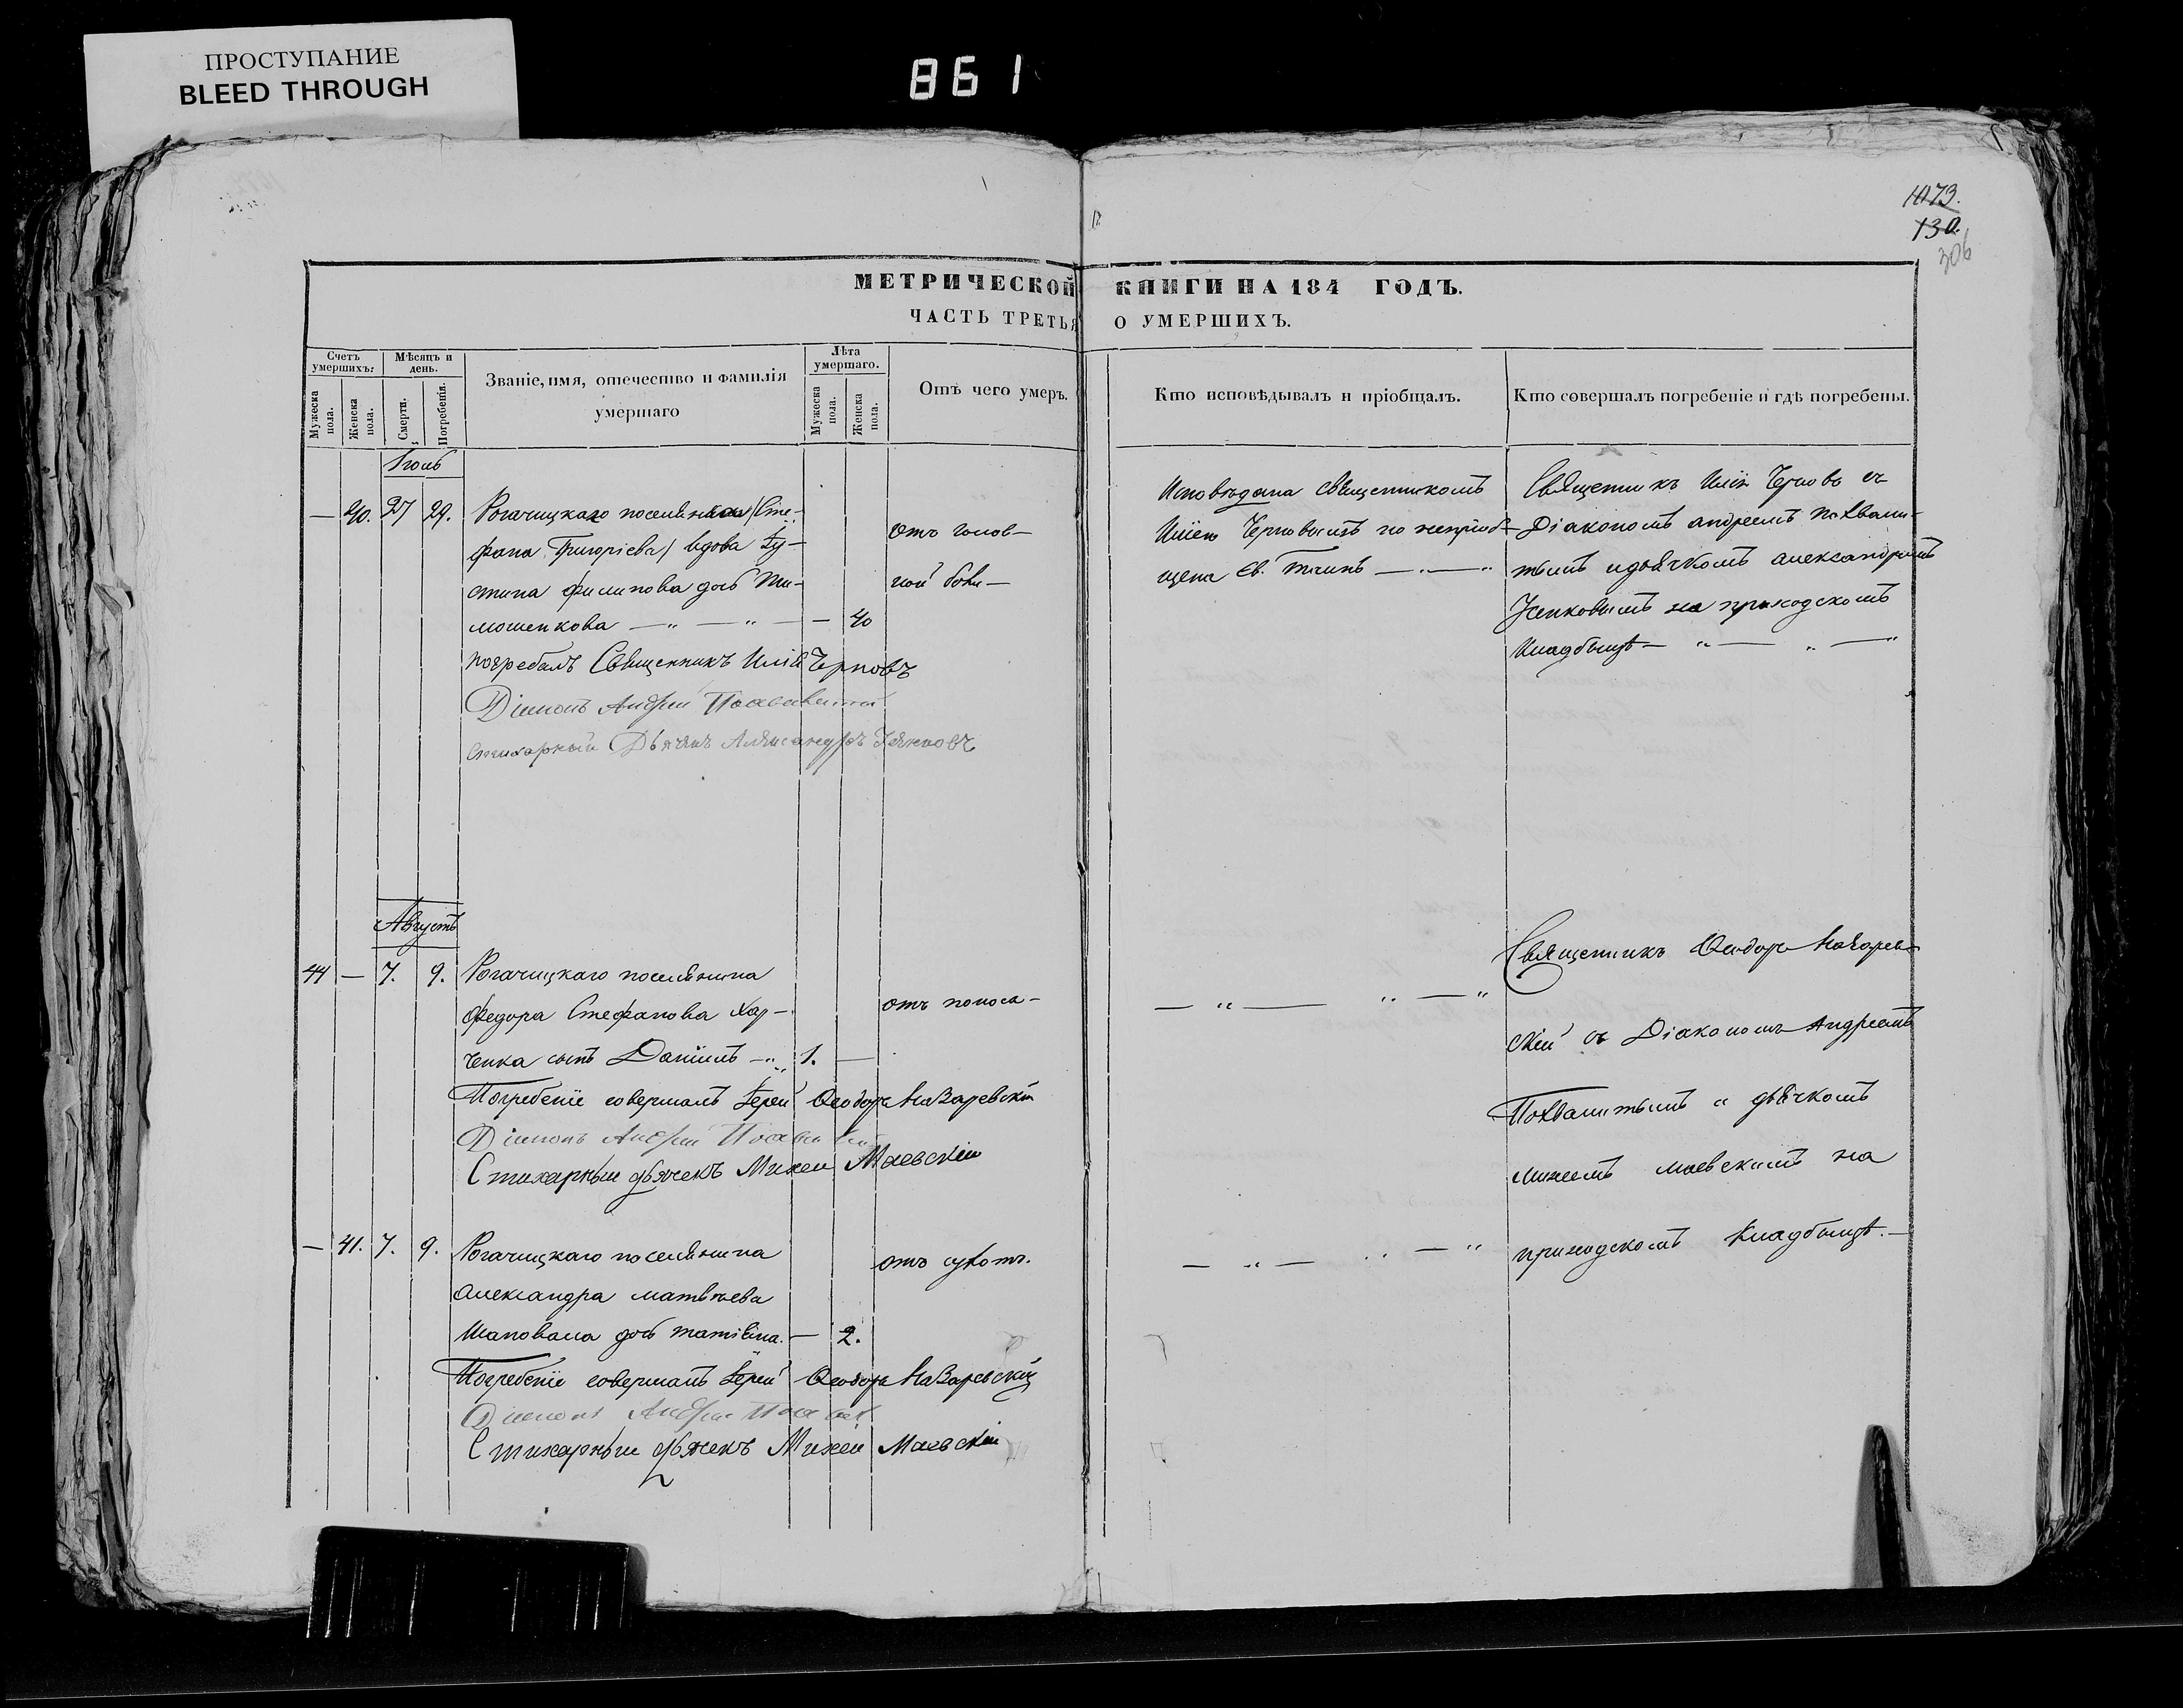 ПРОСТУПАНИЕ
BLEED THROUGH
861
1073.
130.
306
МЕТРИЧЕСКОЙ КНИГИ НА 184 ГОДЪ.
ЧАСТЬ ТРЕТЬЯ О УМЕРШИХЪ.
Счетъ умершихъ:
Мужеска пола.
Женска пола.
Мѣсяцъ и день.
Смерти.
Погребенія.
Званіе, имя, отечество и фамилія умершаго
Лѣта умершаго.
Мужеска пола.
Женска пола.
Отъ чего умеръ.
Кто исповѣдывалъ и пріобщалъ.
Кто совершалъ погребеніе и гдѣ погребены.
Іюль
— 40. 27 29. Рогачицкаго поселянина /Сте-
фана Григоріева/ вдова Іу-
стина Филипова дочь Ти-
мошенкова — " — " — — 40
отъ голов-
ной боли —
Исповѣдана священникомъ
Иліею Черновымъ но непріоб-
щена Св. Таинъ — " — "
Священникъ Илія Черновъ съ
Діакономъ Андреемъ Похвали-
тымъ и дьячкомъ Александромъ
Усенковымъ на приходскомъ
Кладбищѣ — " — " — "
погребалъ Священникъ Илій Черновъ
Діаконъ Андрей Похвалитый
Стихарный Дьячекъ Александръ Усенковъ
Августъ
44 — 7. 9. Рогачицкаго поселянина
Федора Стефанова Хар-
ченка сынъ Даніилъ — " 1. —
отъ поноса —
— " — " — "
Погребеніе совершалъ Іерей Ѳеодоръ Назаревскій
Діаконъ Андрей Похвалитый
Стихарный дьячекъ Михей Маевскій
Священникъ Ѳеодоръ Назарев-
скій съ Діакономъ Андреемъ
Похвалитымъ и дьячкомъ
Михеемъ Маевскимъ на
приходскомъ Кладбищѣ. —
— 41. 7. 9. Рогачицкаго поселянина
Александра Матвѣева
Шаповала дочь Татіана. — 2.
отъ сухотъ.
— " — " — "
Погребеніе совершалъ Іерей Ѳеодоръ Назаревскій
Діаконъ Андрей
Стихарный дьячекъ Михей Маевскій